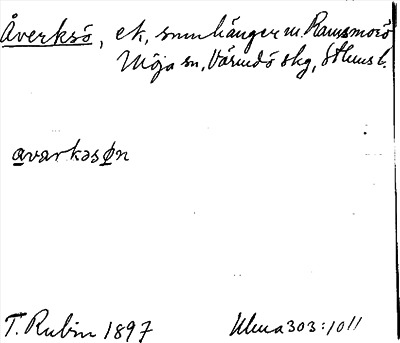 Åverksö, ek, smnhänger m. Ramsmorö
Möja sn, Värmdö skg, Sthms l.
avarkasøn
T. Rubin 1897 Ulma 303:10 11